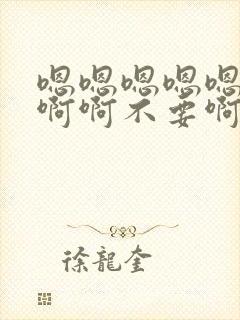 嗯嗯嗯嗯嗯
啊啊不要啊
徐龍奎